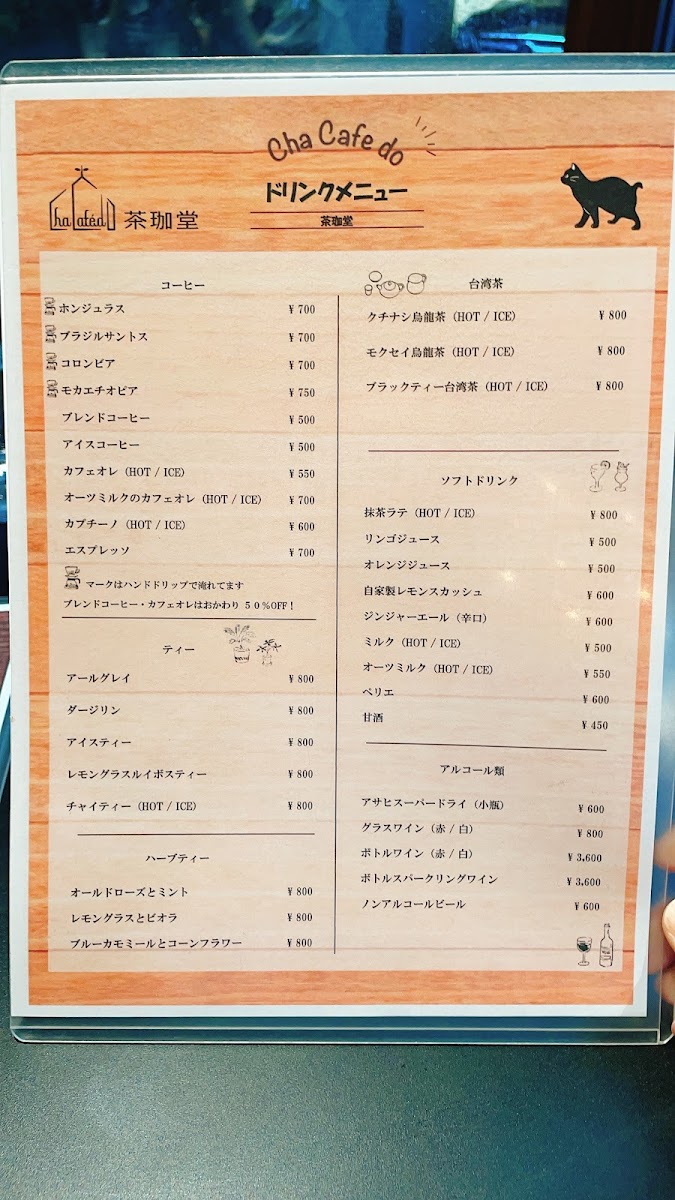 Cha Cafe do
ドリンクメニュー
茶珈堂
Cha Cafedo 茶珈堂
コーヒー
ホンジュラス ¥ 700
ブラジルサントス ¥ 700
コロンビア ¥ 700
モカエチオピア ¥ 750
ブレンドコーヒー ¥ 500
アイスコーヒー ¥ 500
カフェオレ (HOT / ICE) ¥ 550
オーツミルクのカフェオレ (HOT / ICE) ¥ 700
カプチーノ (HOT / ICE) ¥ 600
エスプレッソ ¥ 700
マークはハンドドリップで淹れてます
ブレンドコーヒー・カフェオレはおかわり 50%OFF!
ティー
アールグレイ ¥ 800
ダージリン ¥ 800
アイスティー ¥ 800
レモングラスルイボスティー ¥ 800
チャイティー (HOT / ICE) ¥ 800
ハーブティー
オールドローズとミント ¥ 800
レモングラスとビオラ ¥ 800
ブルーカモミールとコーンフラワー ¥ 800
台湾茶
クチナシ烏龍茶 (HOT / ICE) ¥ 800
モクセイ烏龍茶 (HOT / ICE) ¥ 800
ブラックティー台湾茶 (HOT / ICE) ¥ 800
ソフトドリンク
抹茶ラテ (HOT / ICE) ¥ 800
リンゴジュース ¥ 500
オレンジジュース ¥ 500
自家製レモンスカッシュ ¥ 600
ジンジャーエール (辛口) ¥ 600
ミルク (HOT / ICE) ¥ 500
オーツミルク (HOT / ICE) ¥ 550
ペリエ ¥ 600
甘酒 ¥ 450
アルコール類
アサヒスーパードライ (小瓶) ¥ 600
グラスワイン (赤 / 白) ¥ 800
ボトルワイン (赤 / 白) ¥ 3,600
ボトルスパークリングワイン ¥ 3,600
ノンアルコールビール ¥ 600